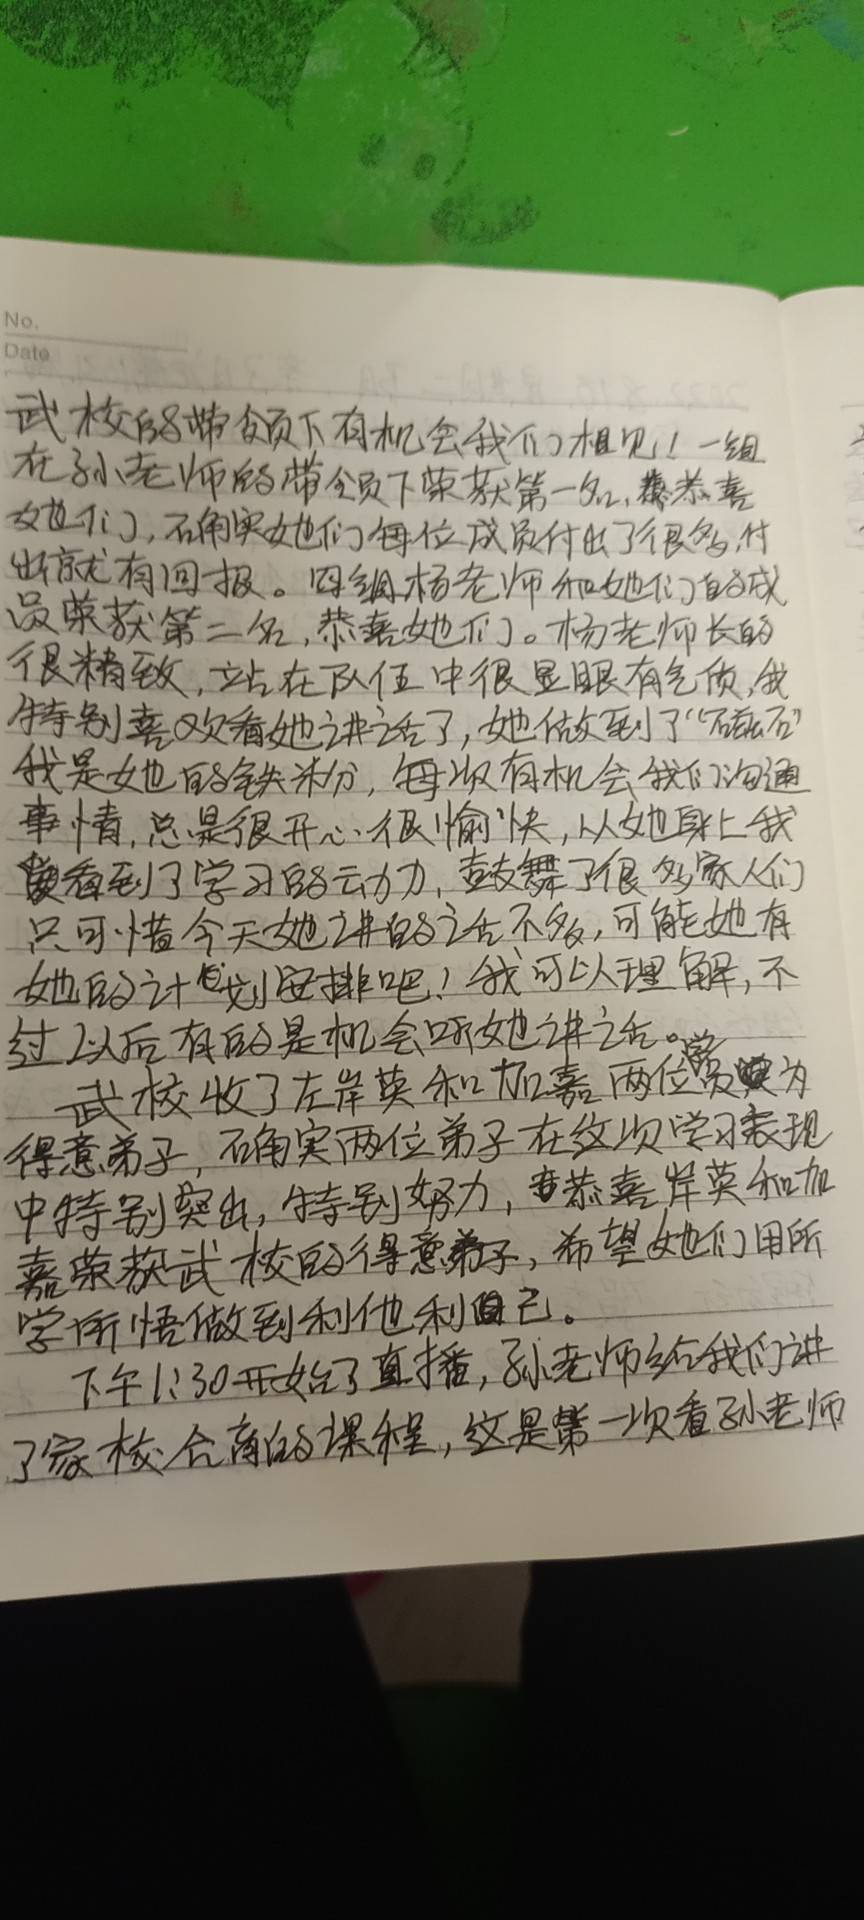 No.
Date
武校的带领下有机会我们相见！一组
在孙老师的带领下荣获第一名，恭喜
她们，确实她们每位成员付出了很多，付
出就有回报。四组杨老师和她们的成
员荣获第二名，恭喜她们。杨老师长的
很精致，站在队伍中很显眼有气质，我
特别喜欢看她讲话了，她做到了“磁石”
我是她的铁粉，每次有机会我们沟通
事情，总是很开心很愉快，从她身上我
看到了学习的动力，鼓舞了很多家人们
只可惜今天她讲的话不多，可能她有
她的计划安排吧！我可以理解，不
过以后有的是机会听她讲话。
武校收了左岸英和加嘉两位学员为
得意弟子，确实两位弟子在这次学习表现
中特别突出，特别努力，恭喜岸英和加
嘉荣获武校的得意弟子，希望她们用所
学所悟做到利他利自己。
下午1:30开始了直播，孙老师给我们讲
了家校合商的课程，这是第一次看孙老师